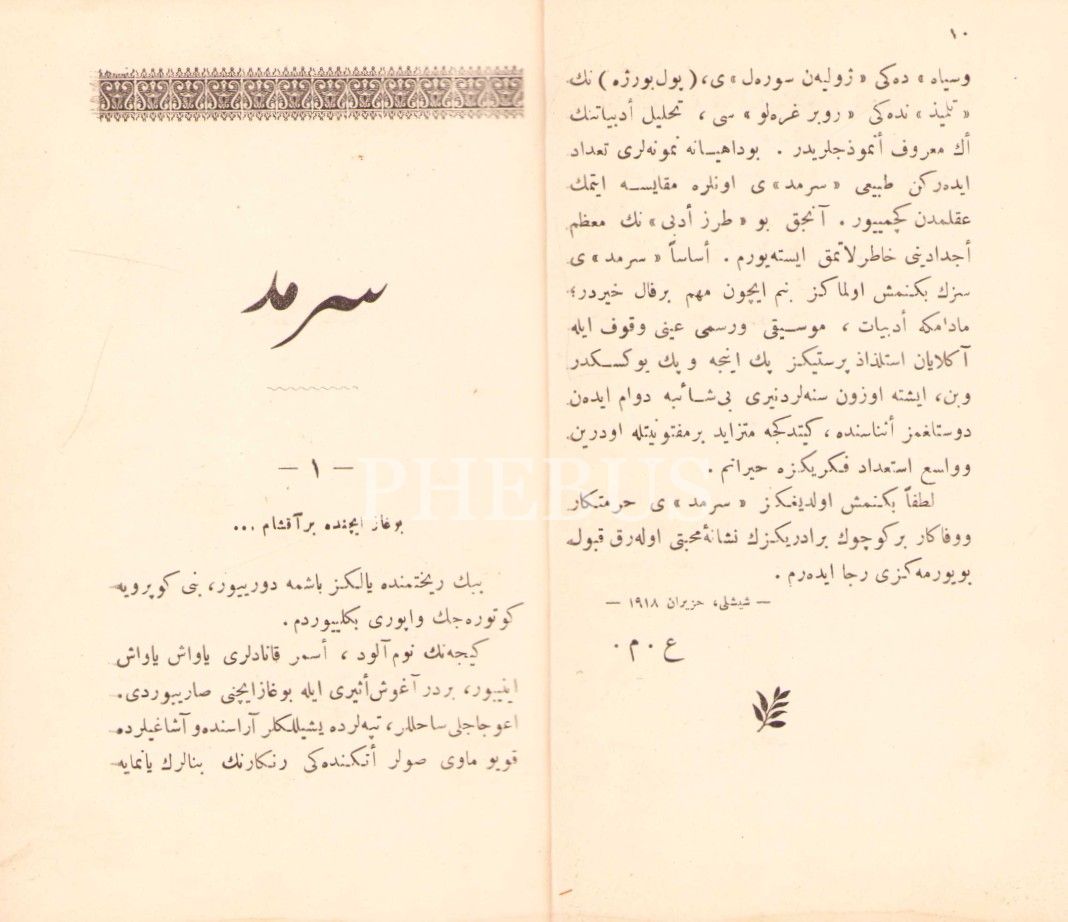 ١٠
وسیاه» ده‌کی «ژولیه‌ن سوره‌ل» ی، (پول بورژه) نك
«تلمیذ» نده‌کی «روبر غره‌لو» سی، تحلیل أدبیاتنك
أڭ معروف أنموذجلریدر. بوداهیانه نمونه‌لری تعداد
ایده‌رکن طبیعی «سرمد» ی اونلره مقایسه ایتمك
عقلمدن کچمییور. آنجق بو «طرز أدبی» نك معظم
أجدادینی خاطرلاتمق ایسته‌یورم. أساساً «سرمد» ی
سزك بکنمش اولماکز بنم ایچون مهم برفال خیردر؛
مادامکه أدبیات، موسیقی ورسمی عینی وقوف ایله
آکلایان استلذاذ پرستیکز پك اینجه و پك یوکسکدر
وبن، ایشته اوزون سنه‌لردنبری بی‌شائبه دوام ایده‌ن
دوستلغمز أثناسنده، کیتدکجه متزاید برمفتونیتله اودرین
وواسع استعداد فکریکزه حیرانم.
لطفاً بکنمش اولدیغکز «سرمد» ی حرمتکار
ووفاکار برکوچوك برادریکزك نشانهٔ محبتی اوله‌رق قبول
بویورمه‌کزی رجا ایده‌رم.
— شیشلی، حزیران ١٩١٨ —
ع. م.
سرمد
— ١ —
بوغاز ایچنده برآقشام ...
ببك ریختمنده یالکز باشمه دورییور، بنی کوپرویه
کوتوره‌جك واپوری بکلییوردم.
کیجه‌نك نوم‌آلود، أسمر قانادلری یاواش یاواش
اینییور، بردر آغوش أثیری ایله بوغازایچنی صارییوردی.
اغوجاجلی ساحللر، تپه‌لرده یشیللکلر آراسنده و آشاغیلرده
قویو ماوی صولر أتکنده‌کی رنکارنك بنالرك یانمایه
PHEBUS